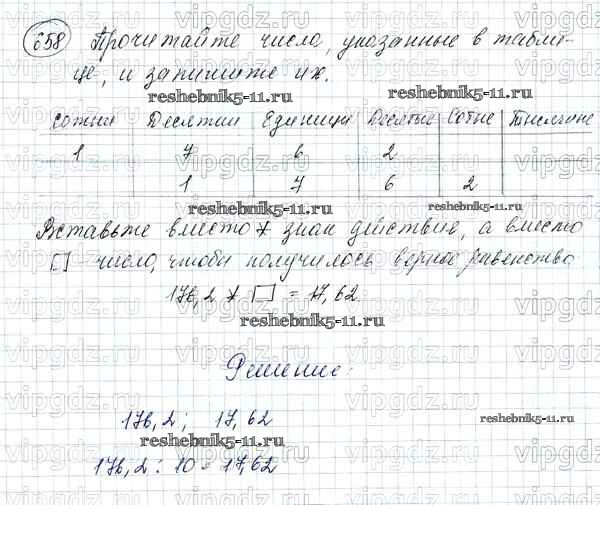 658 Прочитайте числа, указанные в табли-
це, и запишите их.
reshebnik5-11.ru
reshebnik5-11.ru
сотни Десятки Единицы Десятые Сотые Тысячные
1 7 6 2
1 7 6 2
reshebnik5-11.ru
reshebnik5-11.ru
Вставьте вместо * знак действия, а вместо
[] - число, чтобы получилось верное равенство
176,2 * [] = 17,62
reshebnik5-11.ru
Решение:
176,2 ; 17,62
reshebnik5-11.ru
reshebnik5-11.ru
176,2 : 10 = 17,62
vipgdz.ru